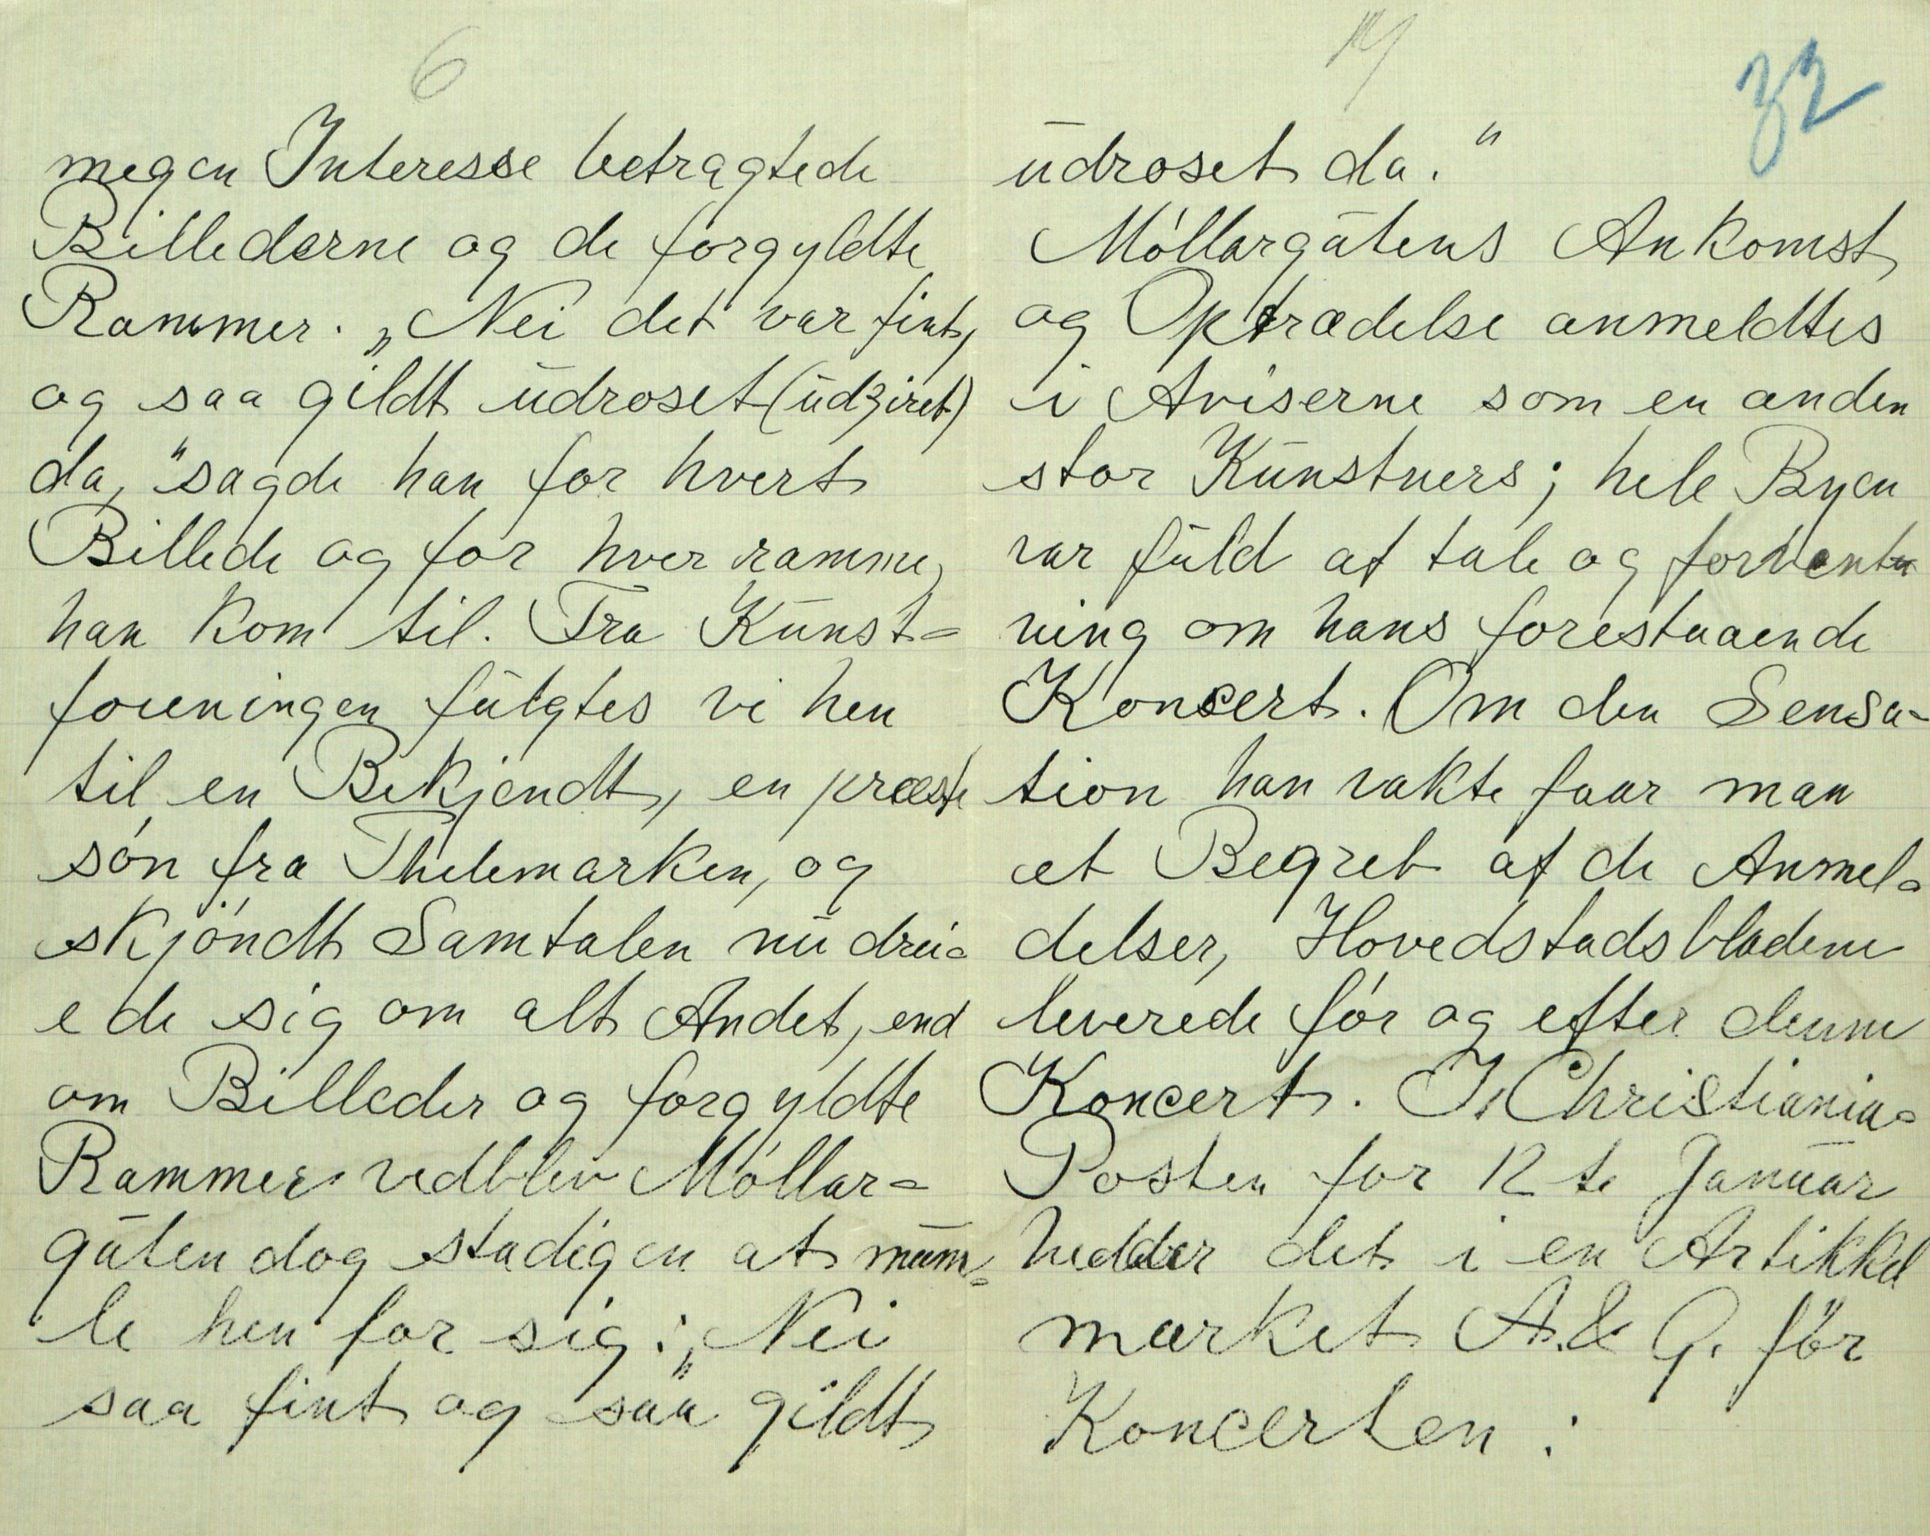 6
megen Interesse betragtede
Billederne og de forgyldte
Rammer. „Nei det var fint,
og saa gildt udroset (udziret)
da," sagde han for hvert
Billede og for hver ramme,
han kom til. Fra Kunst=
foreningen fulgtes vi hen
til en Bekjendt, en præste
søn fra Thelemarken, og
skjøndt Samtalen nu drei=
ede sig om alt Andet, end
om Billeder og forgyldte
Rammer vedblev Møllar=
guten dog stadigen at mum=
le hen for sig: „Nei
saa fint og saa gildt
32
udroset da."
Møllargutens Ankomst
og Optrædelse anmeldtes
i Aviserne som en anden
stor Kunstners; hele Byen
var fuld af tale og forvent
ning om hans forestaaende
Konsert. Om den Sensa-
tion han vakte faar man
et Begreb af de Anmel=
delser, Hovedstadsbladene
leverede før og efter denne
Koncert. I Christiania=
Posten for 12te Januar
hedder det i en Artikkel
mærket A. & G. før
Koncerten: